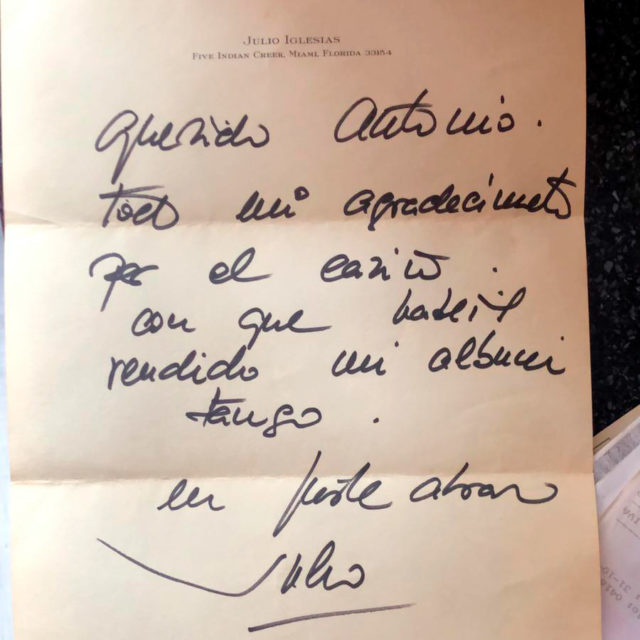 JULIO IGLESIAS
FIVE INDIAN CREEK, MIAMI, FLORIDA 33154
Querido Antonio.
todo mi agradecimeto
por el cariño.
con que habeis
vendido mi album
tango.
un fuerte abrazo
Julio